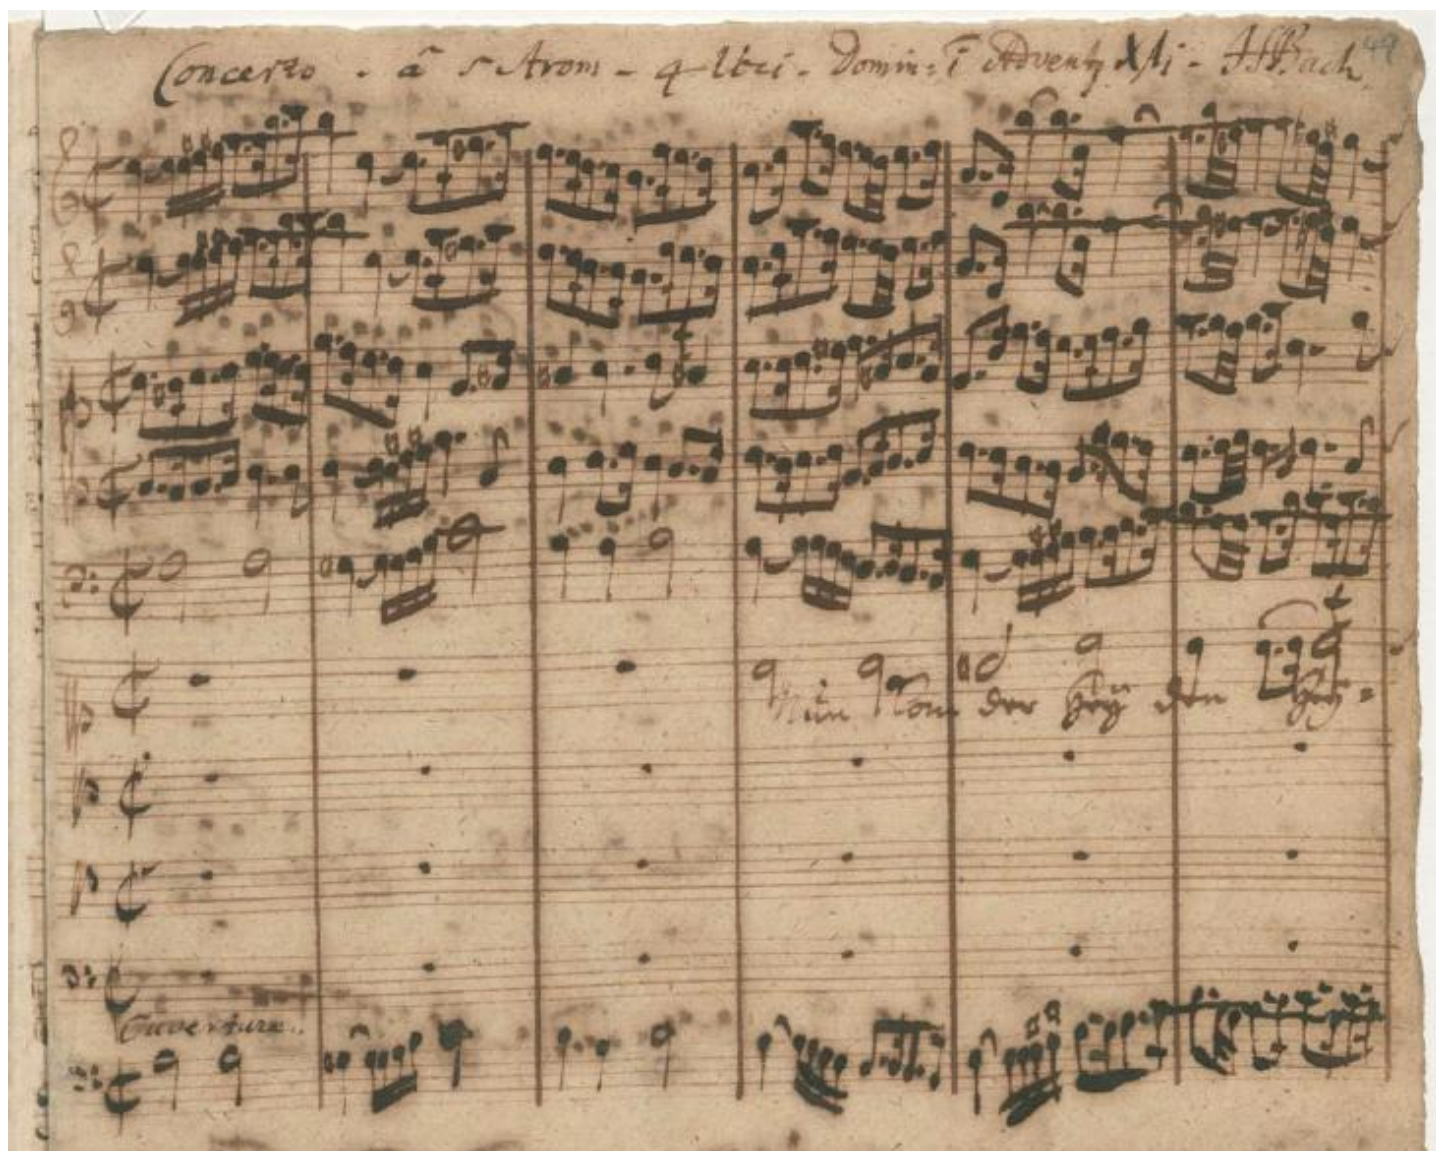 Concerto. â 5 Strom. 4 Voci. Domin: 1 Adventg Xsti. JSBach
49
Nun Kom der Heÿ den Heÿ=
Ouverture.